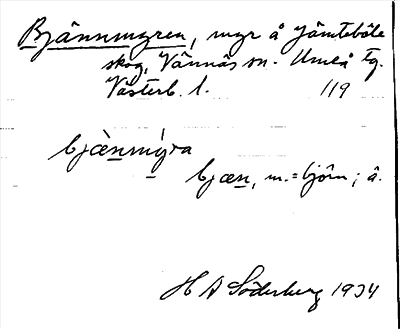 Bjännmyren, myr å Jämteböle
skog, Vännäs sn. Umeå tg.
Västerb. l. 119
bjænmýra
bjæn, m. = björn; â.
H A Söderberg 1934